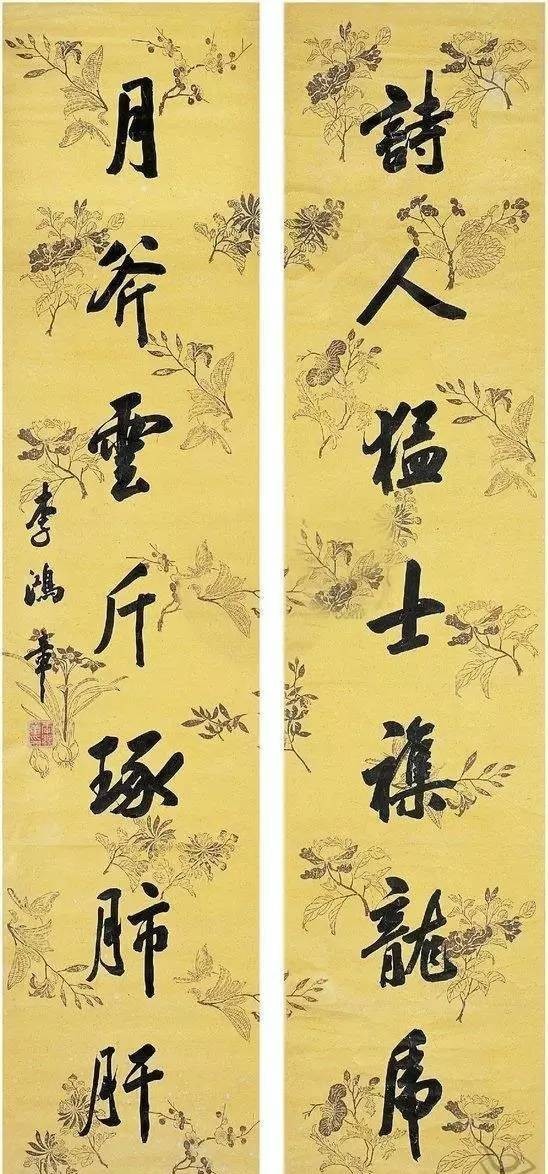 詩人猛士襍龍虎
月斧雲斤琢肺肝
李鴻章